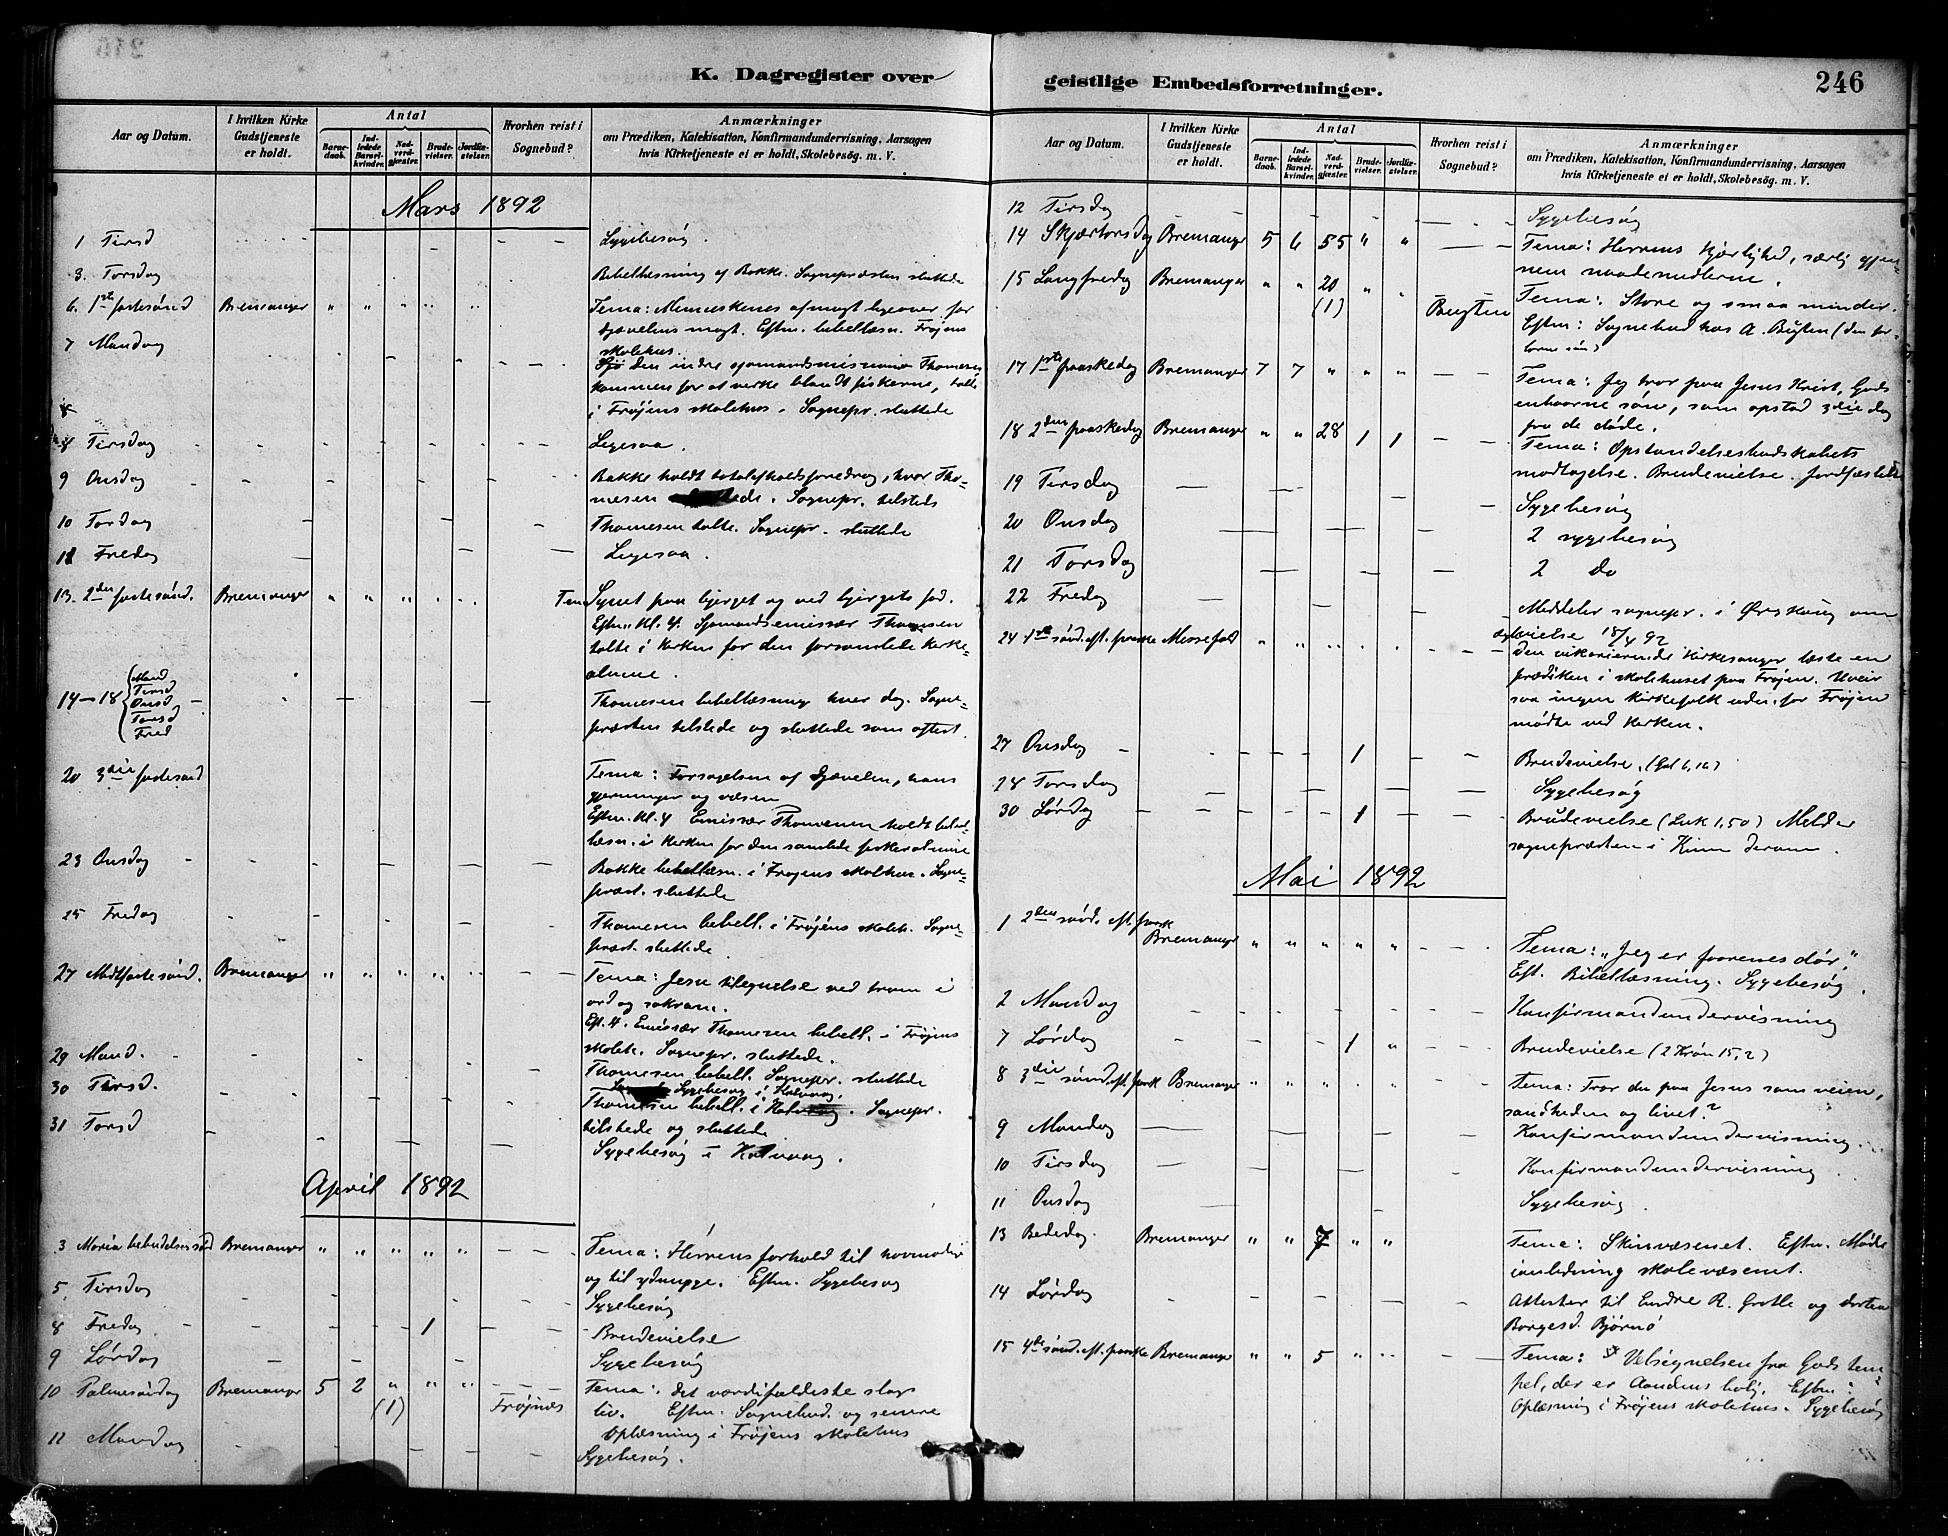 K. Dagregister over
Aar og Datum.
I hvilken Kirke Gudstjeneste er holdt.
Antal
Barnedaab.
Indledede Barselkvinder.
Nadverdgjæster.
Brudevielser.
Jordfæstelser.
Hvorhen reist i Sognebud?
Anmærkninger
om Prædiken, Katekisation, Konfirmandundervisning, Aarsagen
hvis Kirketjeneste ei er holdt, Skolebesög. m. V.
Mars 1892
1 Tirsd Sygebesøg.
3. Torsdag Bibellæsning af Bakke. Sognepræsten sluttede
6. 1ste fastesønd Bremanger " " " " " Tema: Menneskenes afmagt ligeover for
djævelens magt. Eftm. bibellæsn. Frøjens
skolehus.
7 Mandag den indre sjømandsmission Thomesen
kommen for at virke blandt fiskerne, talte
i Frøjens skolehus. Sognepr. sluttede
8 Tirsdag Ligesaa.
9 Onsdag Bakke holdt totalafholdsforedrag, hvor Tho-
mesen sluttede. Sognepr. tilstede
10 Torsdag Thomesen talte. Sognepr. sluttede
11 Fredag Ligesaa.
13. 2den fastesønd. Bremanger " " " " " Tema Synet paa bjerget og ved bjergets fod.
Eftm. Kl. 4. Sjømandsemissær Thomesen
talte i kirken for den forsamlede kirke-
almue.
14-18 Mand Tirsd Onsd Torsd Fred Thomesen bibellæsning hver dag. Sogne-
præsten tilstede og sluttede som oftest.
20 3die fastesønd Tema: Forsagelsen af djævelen, hans
gjerninger og væsen
Eftm. Kl. 4 Emissær Thomesen holdt bibel-
læsn. i kirken for den samlede fiskeralmue
23 Onsdag Bakke bibellæsn. i Frøjens skolehus. Sogne-
præst. sluttede
25 Fredag Thomesen bibell. i Frøjens skoleh. Sogne-
præst. sluttede
27 Midtfastesønd. Bremanger " " " " " Tema: Jesu tilegnelse ved troen i
ord og sakram.
Eft. 4. Emissær Thomesen bibell. i Frøjens
skoleh. Sognepr. sluttede.
29 Mand. Thomesen bibell. Sognepr. sluttede
30 Tirsd. Sygebesøg i Kalvaag.
Thomesen bibell. i Kalvaag. Sognepr.
tilstede og sluttede
31 Torsd Sygebesøg i Kalvaag.
April 1892
3 Mariæ bebudelsessønd Bremanger " " " " " Tema: Herrens forhold til hovmodige
og til ydmyge. Eftm. Sygebesøg
5. Tirsdag Sygebesøg
8 Fredag 1 Brudevielse
9 Lørdag Sygebesøg
10 Palmesøndag Bremanger 5 2 " " " (1) Frøjnæs Tema: det værdifuldeste slags
liv. Eftm. Sognebud. og senere
Oplæsning i Frøjens skolehus
11 Mandag Sygebesøg.
geistlige Embedsforretninger.
246
Aar og Datum.
I hvilken Kirke Gudstjeneste er holdt.
Antal
Barnedaab.
Indledede Barselkvinder.
Nadverdgjæster.
Brudevielser.
Jordfæstelser.
Hvorhen reist i Sognebud?
Anmærkninger
om Prædiken, Katekisation, Konfirmandundervisning, Aarsagen
hvis Kirketjeneste ei er holdt, Skolebesög. m. V.
12 Tirsdag Sygebesøg
14 Skjærtorsdag Bremanger 5 6 55 " " Tema: Herrens kjærlighed, særlig gjen-
nem naademidlerne.
15 Langfredag Bremanger " " 20 " " (1) Bugten Tema: Store og smaa minder.
Eftm: Sognebud hos A. Bugten (den for-
lorne søn)
17 1ste paaskedag Bremanger 7 7 " " " Tema: Jeg tror paa Jesus Krist, Guds
enbaarne søn, som opstod 3die dag
fra de døde.
18 2den paaskedag Bremanger " " 28 1 1 Tema: Opstandelsesbudskabets
modtagelse. Brudevielse. Jordfæstelse
19 Tirsdag Sygebesøg
20 Onsdag 2 sygebesøg
21 Torsdag 2 do
22 Fredag Meddeler sognepr. i Ørskoug om
vielse 18/4 92
24 1ste sønd. eft. paaske Messefald " " " " " den vikarierende kirkesanger læste en
prædiken i skolehuset paa Frøjen. Uveir
saa ingen kirkefolk udenfor Frøjen
mødte ved kirken.
27 Onsdag 1 Brudevielse. (Gal 6,10)
28 Torsdag Sygebesøg
30 Lørdag 1 Brudevielse (Luk 1,50) Melder
sognepræsten i Kinn derom.
Mai 1892
1 2den sønd. eft. paask Bremanger " " " " " Tema: "Jeg er faarenes dør."
Eft. Bibellæsning. Sygebesøg.
2 Mandag Konfirmandundervisning
7 Lørdag 1 " Brudevielse (2 Krøn 15,2)
8 3die sønd. eft. paask Bremanger " " " " " Tema: Tror du paa Jesus som veien,
sandheden og livet?
9 Mandag Konfirmandundervisning.
10 Tirsdag Konfirmandundervisning.
11 Onsdag Sygebesøg.
13 Bededag. Bremanger " " 7 " " Tema: Skinvæsenet. Eftm. Møde
i anledning skolevæsenet.
14 Lørdag Attester til Endre R. Grotle og dorthea
Borgesd. Bjørnø
15 4de sønd. eft. paaske Bremanger " " 5 " " Tema: Velsignelsen fra Guds tem-
pel, der er Aandens bolig. Eftm:
Oplæsning i Frøjens skolehus. Sygebesøg